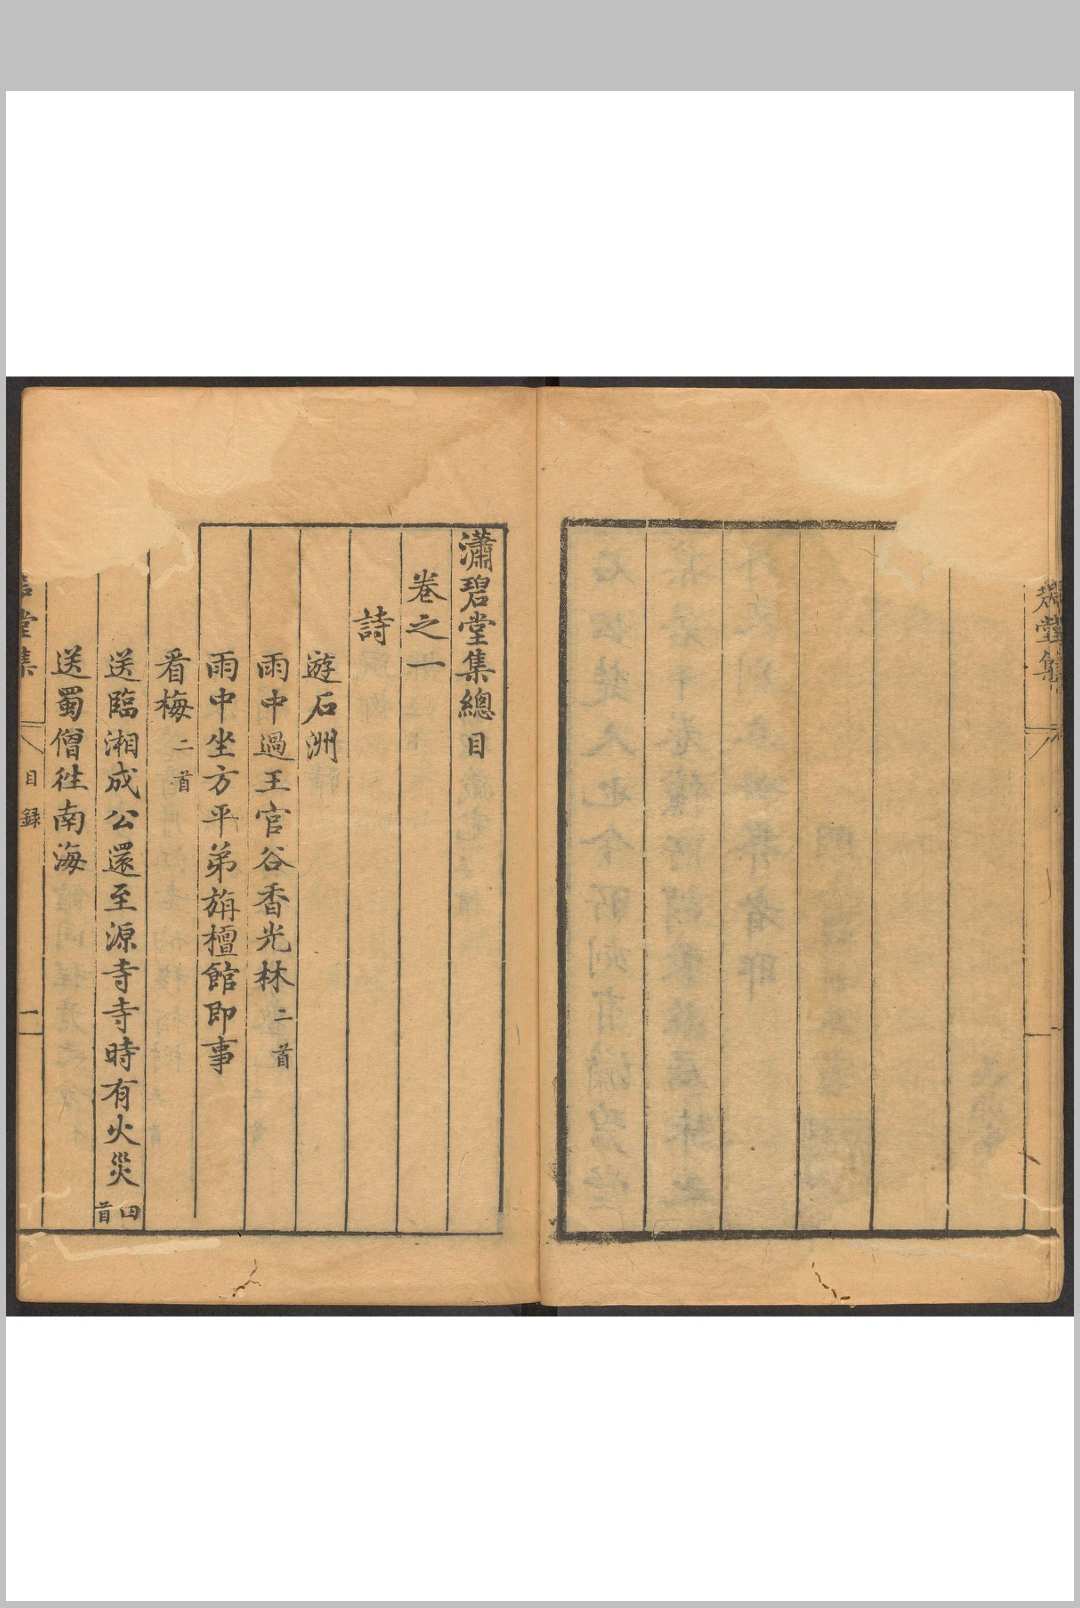 堂集
瀟碧堂集總目
卷之一
詩
遊石洲
雨中過王官谷香光林二首
雨中坐方平弟旃檀館即事
看梅二首
送臨湘成公還至源寺寺時有火災四首
送蜀僧往南海
堂集
目録
一